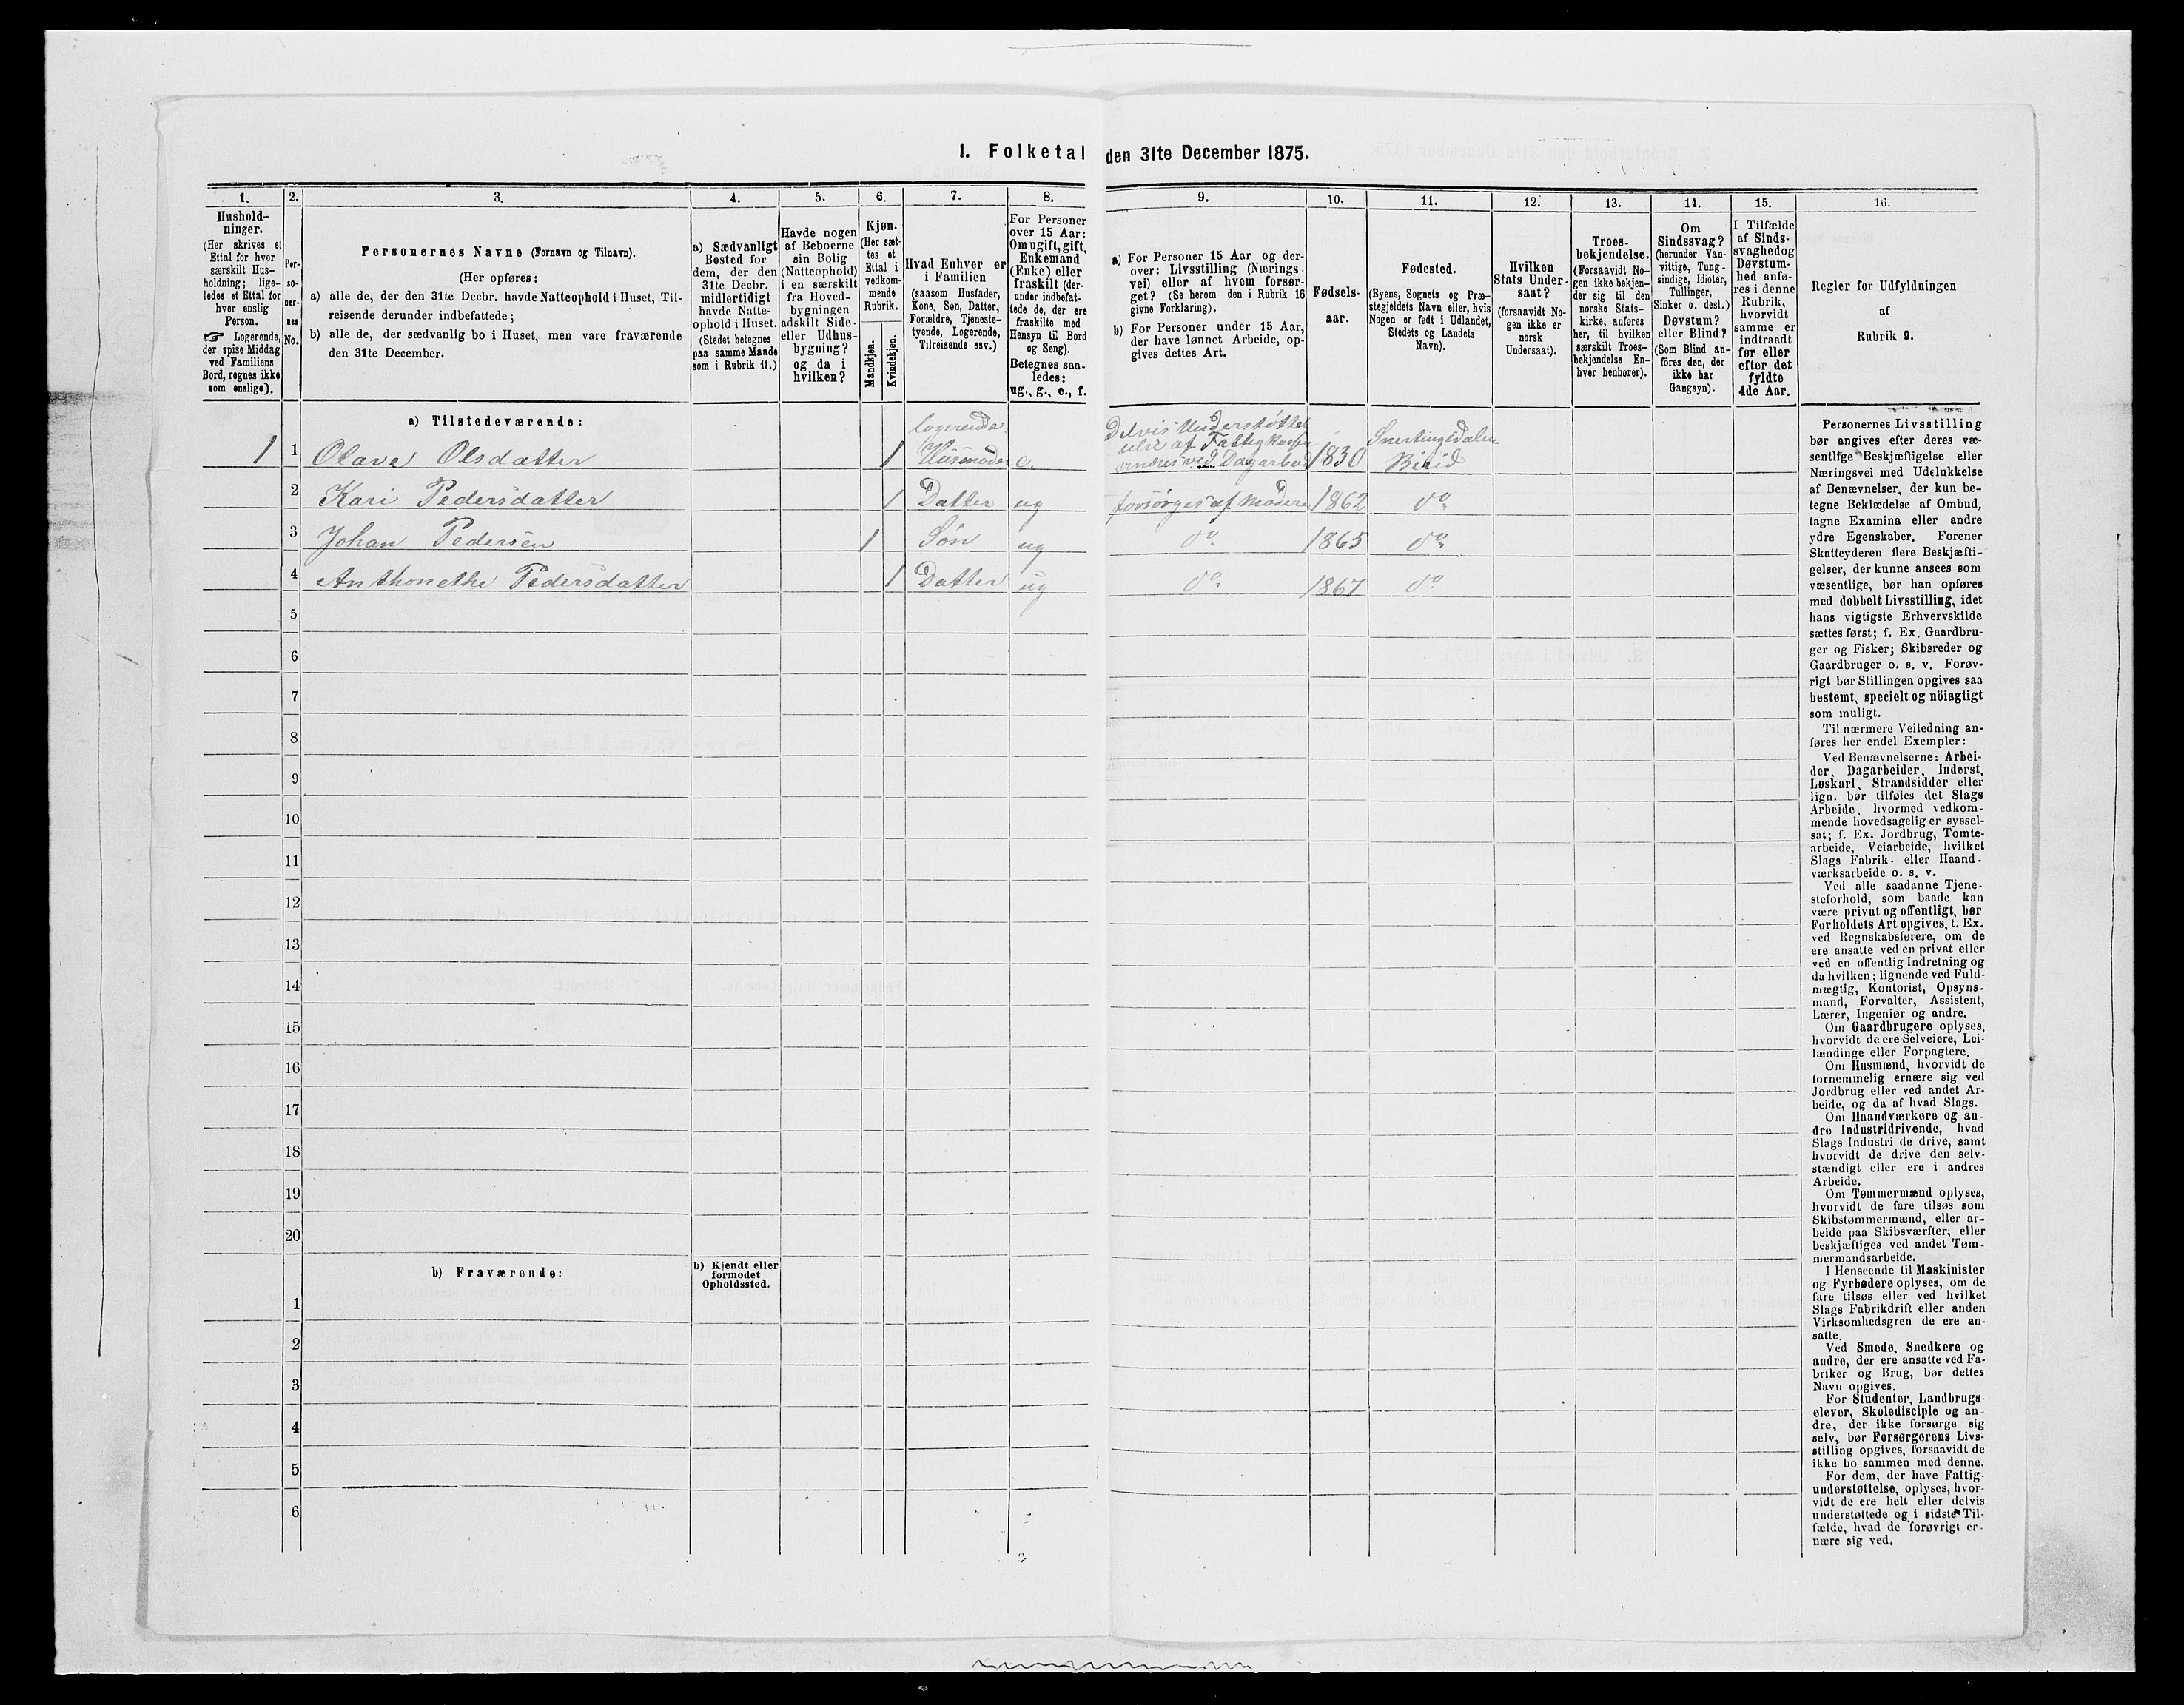 1. Folketal den 31te December 1875.
1.
Hushold-
ninger.
(Her skrives et
Ettal for hver
særskilt Hus-
holdning; lige-
ledes et Ettal for
hver enslig
Person.
☞ Logerende,
der spise Middag
ved Familiens
Bord, regnes ikke
som enslige).
2.
Per-
so-
ner-
nes
No.
3.
Personernes Navne (Fornavn og Tilnavn).
(Her opføres:
a) alle de, der den 31te Decbr. havde Natteophold i Huset, Til-
reisende derunder indbefattede;
b) alle de, der sædvanlig bo i Huset, men vare fraværende
den 31te December.
4.
a) Sædvanligt
Bosted for
dem, der den
31te Decbr.
midlertidigt
havde Natte-
ophold i Huset.
(Stedet betegnes
paa samme Maade
som i Rubrik 11.)
5.
Havde nogen
af Beboerne
sin Bolig
(Natteophold)
i en særskilt
fra Hoved-
bygningen
adskilt Side-
eller Udhus-
bygning?
og da i
hvilken?
6.
Kjøn.
(Her sæt-
tes et
Ettal i
vedkom-
mende
Rubrik.
Mandkjøn.
Kvindekjøn.
7.
Hvad Enhver er
i Familien
(saasom Husfader,
Kone, Søn, Datter,
Forældre, Tjeneste-
tyende, Logerende,
Tilreisende osv.)
8.
For Personer
over 15 Aar:
Om ugift, gift,
Enkemand
(Enke) eller
fraskilt (der-
under indbefat-
tede de, der ere
fraskilte med
Hensyn til Bord
og Seng).
Betegnes saa-
ledes:
ug., g., e., f.
9.
a) For Personer 15 Aar og der-
over: Livsstilling (Nærings-
vei) eller af hvem forsør-
get? (Se herom den i Rubrik 16
givne Forklaring).
b) For Personer under 15 Aar,
der have lønnet Arbeide, op-
gives dettes Art.
10.
Fødsels-
aar.
11.
Fødested.
(Byens, Sognets og Præ-
stegjeldets Navn eller, hvis
Nogen er født i Udlandet,
Stedets og Landets
Navn).
12.
Hvilken
Stats Under-
saat?
(forsaavidt No-
gen ikke er
norsk
Undersaat).
13.
Troes-
bekjendelse.
(Forsaavidt No-
gen ikke bekjen-
der sig til den
norske Stats-
kirke, anføres
her, til hvilken
særskilt Troes-
bekjendelse En-
hver henhører).
14.
Om
Sindssvag?
(herunder Van-
vittige, Tung-
sindige, Idioter,
Tullinger,
Sinker o. desl.)
Døvstum?
eller Blind?
(Som Blind an-
føres den, der
ikke har
Gangsyn).
15.
I Tilfælde
af Sinds-
svaghed og
Døvstum-
hed anfø-
res i denne
Rubrik,
hvorvidt
samme er
indtraadt
før eller
efter det
fyldte
4de Aar.
16.
Regler for Udfyldningen
af
Rubrik 9.
a) Tilstedeværende:
1 1 Olave Olsdatter 1 logerende Husmoder e. Delvis Understøttet af Fattigkassen ved Dagarbed 1830 Snertingsdalen Birid
2 Kari Pedersdatter 1 Datter ug forsørges af Moderen 1862 do
3 Johan Pedersen 1 Søn ug do 1865 do
4 Anthonethe Pedersdatter 1 Datter ug do 1867 do
5
6
7
8
9
10
11
12
13
14
15
16
17
18
19
20
b) Fraværende:
b) Kjendt eller
formodet
Opholdssted.
1
2
3
4
5
6
Personernes Livsstilling
bør angives efter deres væ-
sentlige Beskjæftigelse eller
Næringsvei med Udelukkelse
af Benævnelser, der kun be-
tegne Beklædelse af Ombud,
tagne Examina eller andre
ydre Egenskaber. Forener
Skatteyderen flere Beskjæfti-
gelser, der kunne ansees som
væsentlige, bør han opføres
med dobbelt Livsstilling, idet
hans vigtigste Erhvervskilde
sættes først; f. Ex. Gaardbru-
ger og Fisker; Skibsreder og
Gaardbruger o. s. v. Forøv-
rigt bør Stillingen opgives saa
bestemt, specielt og nöiagtigt
som muligt.
Til nærmere Veiledning an-
føres her endel Exempler:
Ved Benævnelserne: Arbei-
der, Dagarbeider, Inderst,
Løskarl, Strandsidder eller
lign. bør tilføies det Slags
Arbeide, hvormed vedkom-
mende hovedsagelig er syssel-
sat; f. Ex. Jordbrug, Tomte-
arbeide, Veiarbeide, hvilket
Slags Fabrik- eller Haand-
værksarbeide o. s. v.
Ved alle saadanne Tjene-
steforhold, som baade kan
være privat og offentligt, bør
Forholdets Art opgives, t. Ex.
ved Regnskabsførere, om de
ere ansatte ved en privat eller
ved en offentlig Indretning og
da hvilken; lignende ved Fuld-
mægtig, Kontorist, Opsyns-
mand, Forvalter, Assistent,
Lærer, Ingeniør og andre.
Om Gaardbrugere oplyses,
hvorvidt de ere Selveiere, Lei-
lændinge eller Forpagtere.
Om Husmænd, hvorvidt de
fornemmelig ernære sig ved
Jordbrug eller ved andet Ar-
beide, og da af hvad Slags.
Om Haandværkere og an-
dre Industridrivende, hvad
Slags Industri de drive, samt
hvorvidt de drive den selv-
stændigt eller ere i andres
Arbeide.
Om Tømmermænd oplyses,
hvorvidt de fare tilsøs som
Skibstømmermænd, eller ar-
beide paa Skibsværfter, eller
beskjæftiges ved andet Tøm-
mermandsarbeide.
I Henseende til Maskinister
og Fyrbødere oplyses, om de
fare tilsøs eller ved hvilket
Slags Fabrikdrift eller anden
Virksomhedsgren de ere an-
satte.
Ved Smede, Snedkere og
andre, der ere ansatte ved Fa-
briker og Brug, bør dettes
Navn opgives.
For Studenter, Landbrugs-
elever, Skoledisciple og an-
dre, der ikke forsørge sig
selv, bør Forsørgerens Livs-
stilling opgives, forsaavidt de
ikke bo sammen med denne.
For dem, der have Fattig-
understøttelse, oplyses, hvor-
vidt de ere helt eller delvis
understøttede og i sidste Til-
fælde, hvad de forøvrigt er-
nære sig ved.